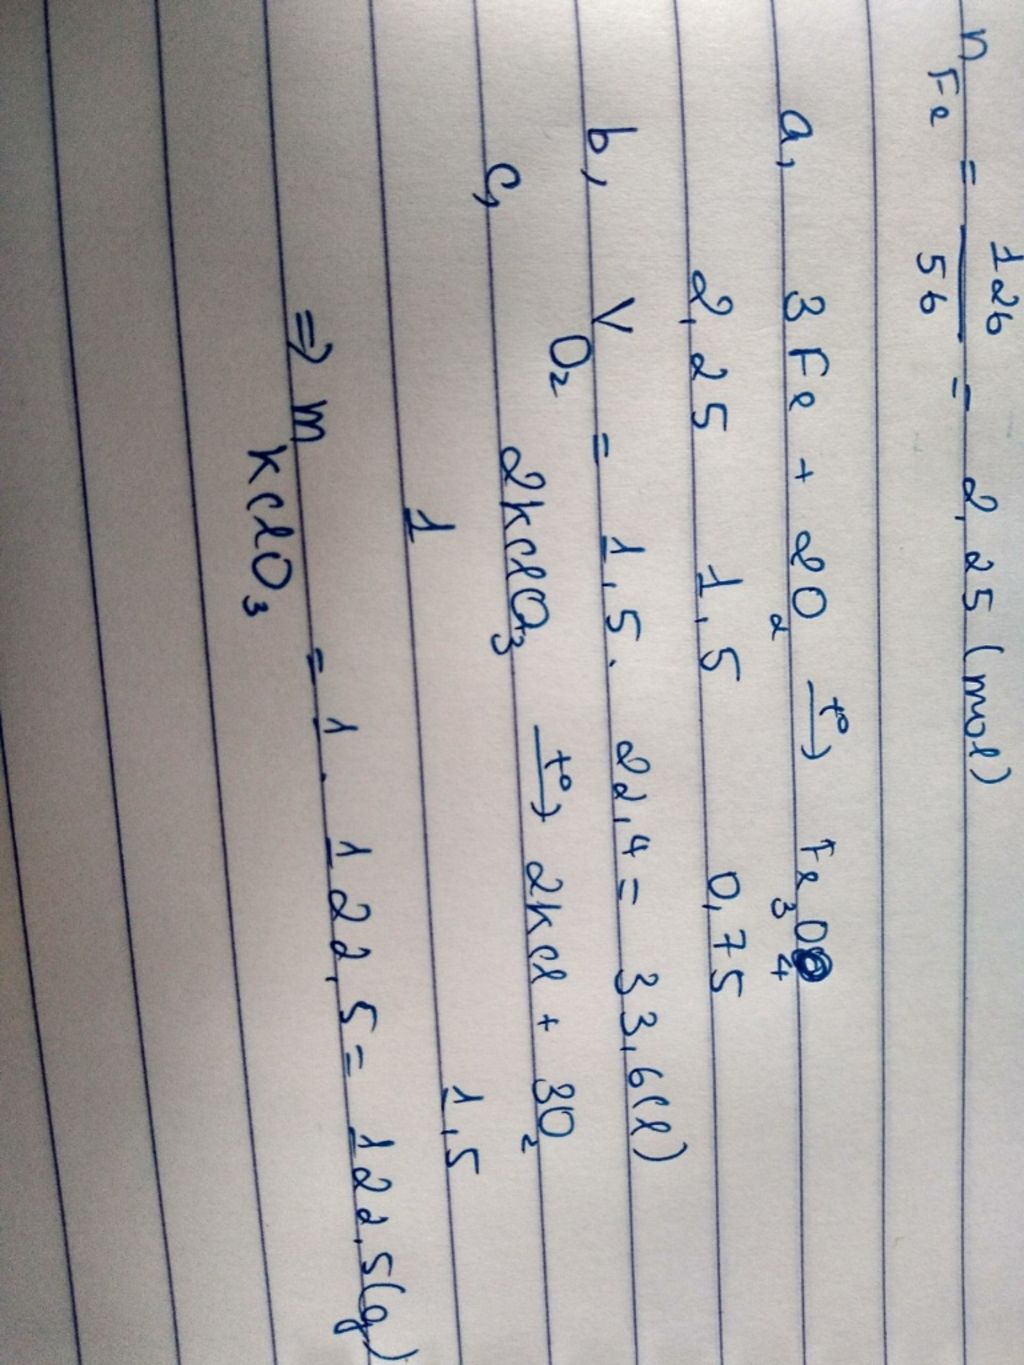 n Fe = 126/56 = 2,25 (mol)
a, 3Fe + 2O₂ t°→ Fe₃O₄
2,25 1,5 0,75
b, V O₂ = 1,5. 22,4 = 33,6(l)
c, 2KClO₃ t°→ 2KCl + 3O₂
1 1,5
=> m KClO₃ = 1. 122,5 = 122,5(g)